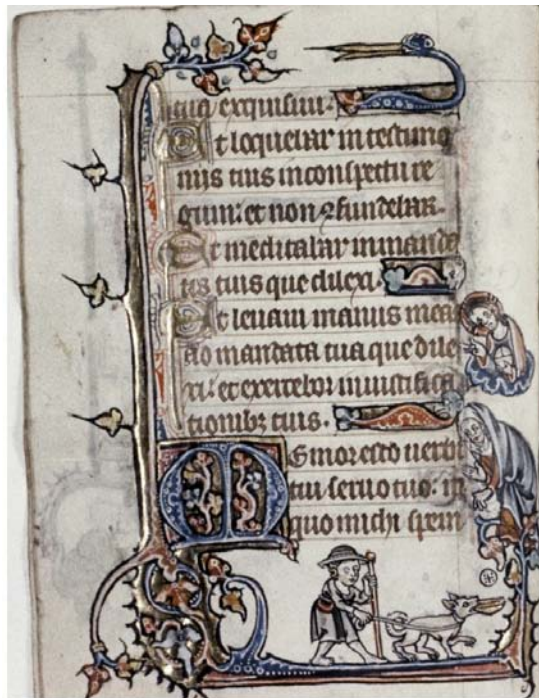 tua exquisiui.
Et loquebar in testimo
niis tuis in conspectu re
gum: et non ꝯfundebar.
Et meditabar in manda
tis tuis que dilexi.
Et leuaui manus mea
ad mandata tua que dile
xi: et exercebor in iustifica
tionibꝫ tuis.
Memor esto uerbi
tui seruo tuo: in
quo michi spem